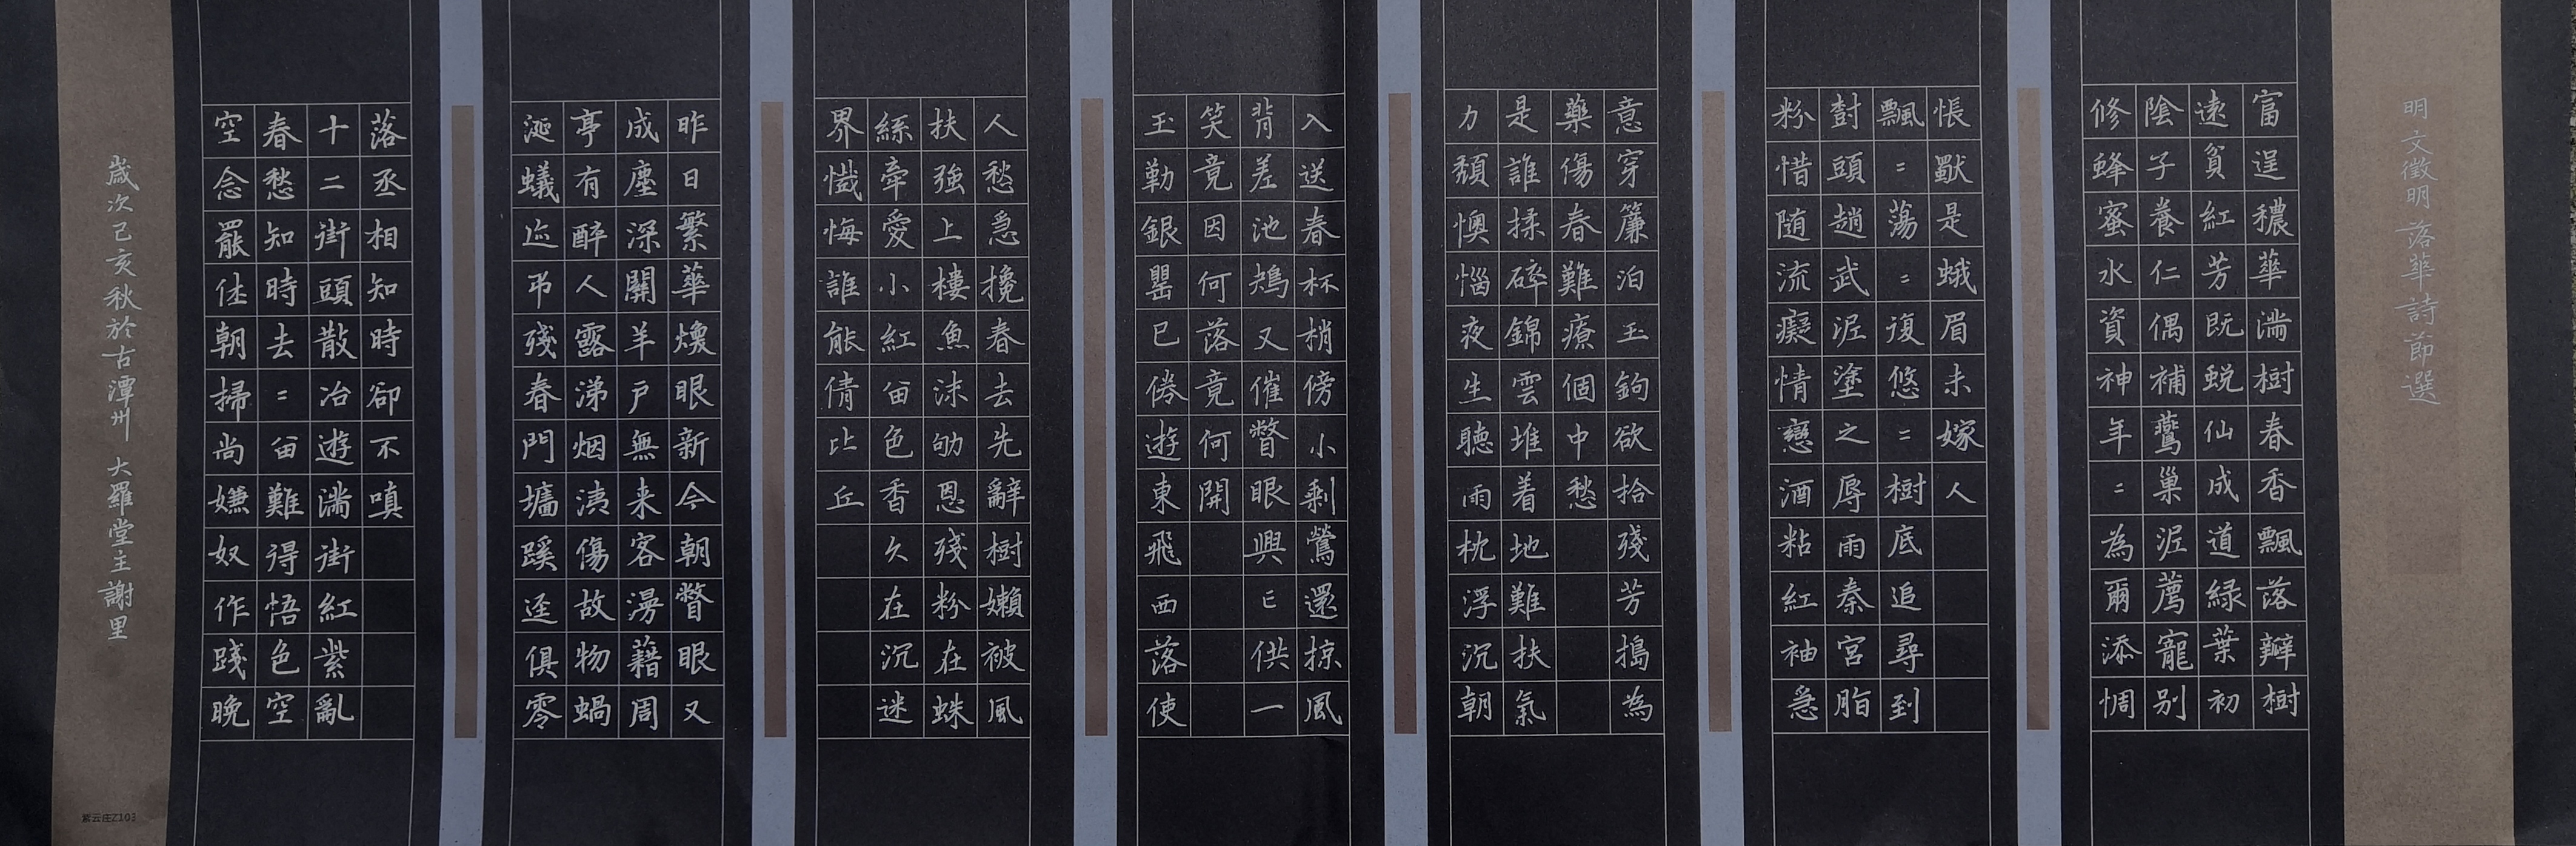 明文徵明落華詩節選
富逞穠華滿樹春香飄落瓣樹
遠貧紅芳既蛻仙成道綠葉初
陰子養仁偶補鶯巢泥薦寵別
修蜂蜜水資神年〻為爾添惆
悵歇是蛾眉未嫁人
飄〻蕩〻復悠〻樹底追尋到
樹頭趙武泥塗之辱雨秦宮脂
粉惜随流癡情戀酒粘紅袖急
意穿簾泊玉鉤欲拾殘芳搗為
藥傷春難療個中愁
是誰揉碎錦雲堆着地難扶氣
力頹懊惱夜生聽雨枕浮沉朝
入送春杯梢傍小剩鶯還掠風
背差池鴆又催瞥眼興亡供一
笑竟因何落竟何開
玉勒銀罌已倦遊東飛西落使
人愁急挽春去先辭樹嬾被風
扶強上樓魚沫劬恩殘粉在蛛
絲牽愛小紅留色香久在沉迷
界懺悔誰能倩比丘
昨日繁華煥眼新今朝瞥眼又
成塵深關羊戶無来客漫藉周
亭有醉人露涕烟洟傷故物蝸
涎蟻迹弔殘春門墻蹊逕俱零
落丞相知時卻不嗔
十二街頭散冶遊滿街紅紫亂
春愁知時去〻留難得悟色空
空念罷休朝掃尚嫌奴作踐晚
歲次己亥秋於古潭州 大羅堂主謝里
紫云庄Z103